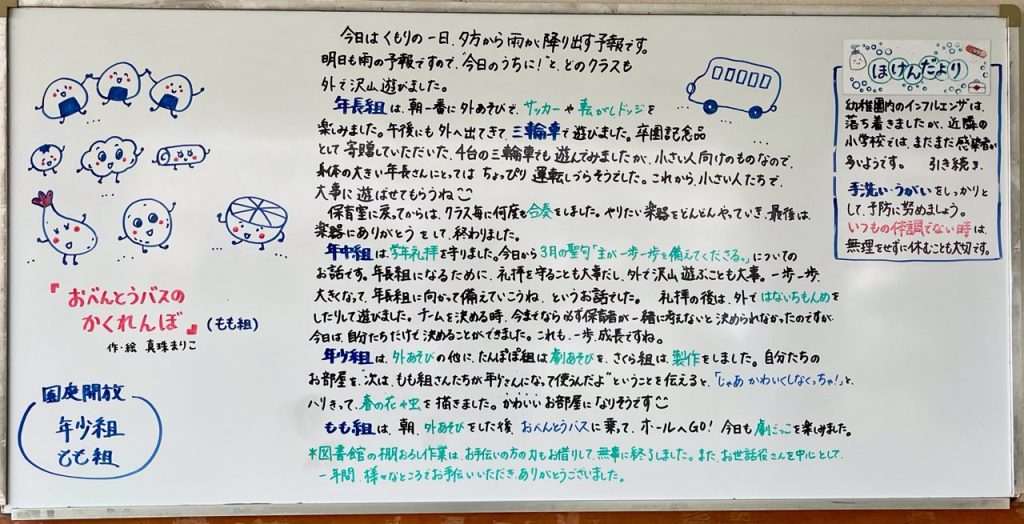 『おべんとうバスの
かくれんぼ』(もも組)
作・絵 真珠まりこ
園庭開放
年少組
もも組
今日はくもりの一日、夕方から雨が降り出す予報です。
明日も雨の予報ですので、"今日のうちに!"と、どのクラスも
外で沢山遊びました。
年長組は、朝一番に外あそびで、サッカーや転がしドッジを
楽しみました。午後にも外へ出てきて三輪車で遊びました。卒園記念品
として寄贈していただいた、4台の三輪車でも遊んでみましたが、小さい人向けのものなので、
身体の大きい年長さんにとってはちょっぴり運転しづらそうでした。これから、小さい人たちで、
大事に遊ばせてもらうね
保育室に戻ってからは、クラス毎に何度も合奏をしました。やりたい楽器をどんどんやっていき、最後は、
楽器にありがとうをして、終わりました。
年中組は、学年礼拝を守りました。今日から3月の聖句「主が一歩一歩を備えてくださる。」についての
お話です。年長組になるために、礼拝を守ることも大事だし、外で沢山遊ぶことも大事。一歩一歩、
大きくなって、年長組に向かって備えていこうね、というお話でした。 礼拝の後は、外ではないちもんめを
したりして遊びました。チームを決める時、今までなら必ず保育者が一緒に考えないと決められなかったのですが、
今日は、自分たちだけで決めることができました。これも、一歩、成長ですね。
年少組は、外あそびの他に、たんぽぽ組は劇あそびを、さくら組は、製作をしました。自分たちの
お部屋を、"次は、もも組さんたちが年少さんになって使うんだよ"ということを伝えると、「じゃあかわいくしなくっちゃ!」と、
ハリきって、春の花や虫を描きました。かわいいお部屋になりそうです
もも組は、朝、外あそびをした後、おべんとうバスに乗って、ホールへGO! 今日も劇ごっこを楽しみました。
*図書館の棚おろし作業は、お手伝いの方の力もお借りして、無事に終了しました。また、お世話役さんを中心として、
一年間、様々なところでお手伝いいただき、ありがとうございました。
ほけんだより
幼稚園内のインフルエンザは、
落ち着きましたが、近隣の
小学校では、まだまだ感染者が
多いようです。 引き続き、
手洗い・うがいをしっかりと
して、予防に努めましょう。
いつもの体調でない時は、
無理をせずに休むことも大切です。